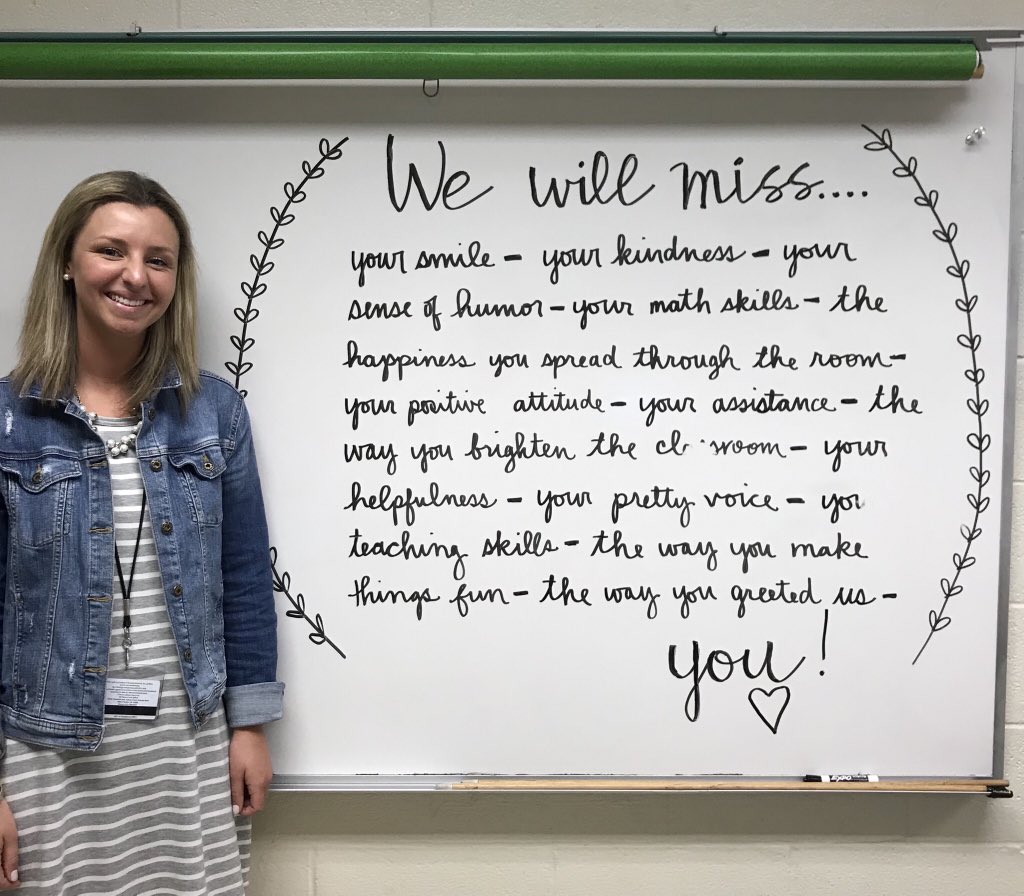 We will miss....
your smile - your kindness - your
sense of humor - your math skills - the
happiness you spread through the room -
your positive attitude - your assistance - the
way you brighten the - your
helpfulness - your pretty voice -
teaching skills - the way you make
things fun - the way you greeted us -
you!
EXPO